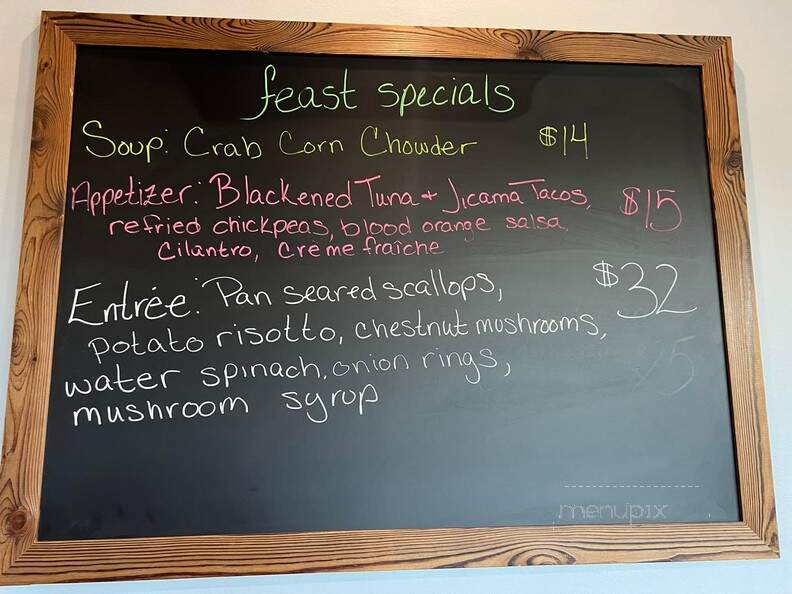 feast specials
Soup: Crab Corn Chowder $14
Appetizer: Blackened Tuna + Jicama Tacos, $15
refried chickpeas, blood orange salsa,
Cilantro, Crème fraîche
Entrée: Pan seared scallops, $32
potato risotto, chestnut mushrooms,
water spinach, onion rings,
mushroom syrup
menupix